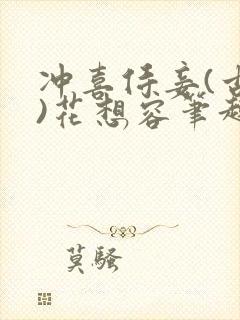 冲喜侍妾(古
)花想容笔趣
莫骚